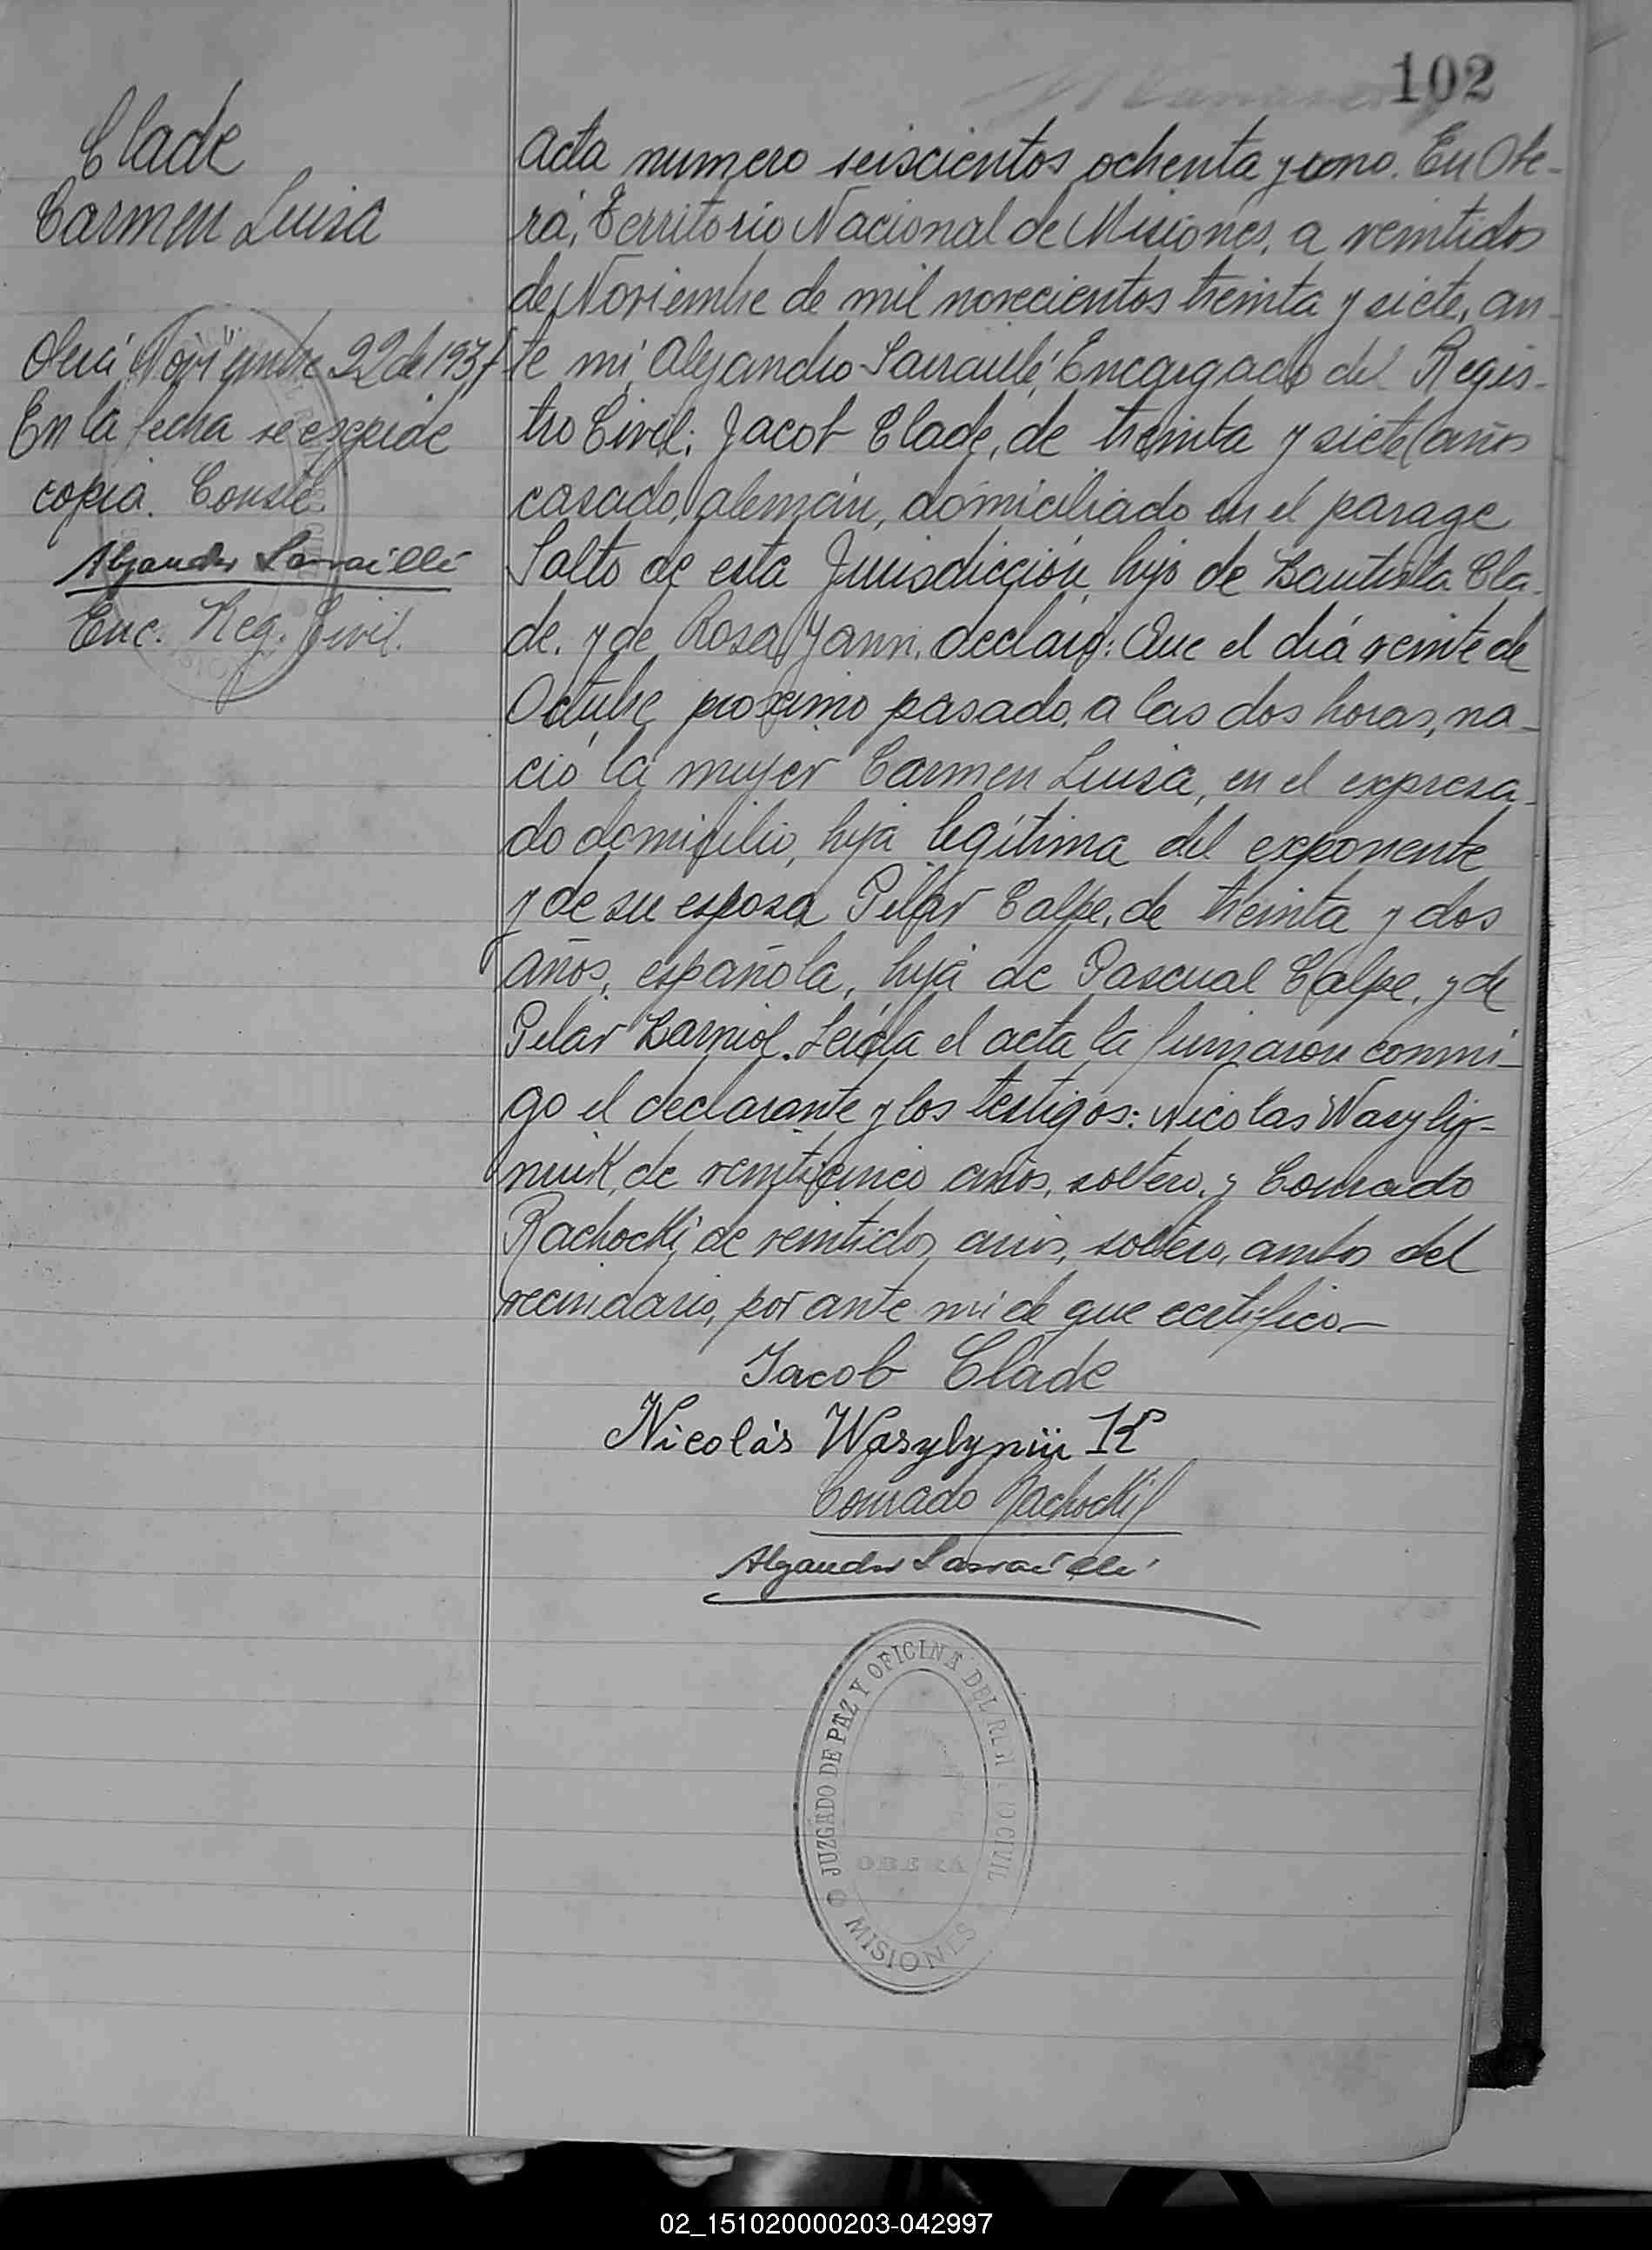 102
Clade
Carmen Luisa
Oberá Noviembre 22 de 1937
En la fecha se expide
copia. Conste
Alejandro Sarraillé
Enc. Reg. Civil.
Acta numero seiscientos ochenta y uno. En Obe-
rá, Territorio Nacional de Misiones, a veintidos
de Noviembre de mil novecientos treinta y siete, an-
te mí, Alejandro Sarraillé, Encargado del Regis-
tro Civil: Jacob Clade, de treinta y siete años
casado, alemán, domiciliado en el parage
Salto de esta Jurisdicción, hijo de Bautista Cla-
de, y de Rosa Yann, declaró: Que el diá veinte de
Octubre proximo pasado, a las dos horas, na-
ció la mujer Carmen Luisa, en el expresa-
do domicilio, hija legítima del exponente
y de su esposa Pilar Calpe, de treinta y dos
años, española, hija de Pascual Calpe, y de
Pilar Barniol. Leída el acta la firmaron conmi-
go el declarante y los testigos: Nicolas Wasyliy-
niuk, de veinticinco años, soltero, y Conrado
Rachocki, de veintidos años, soltero, ambos del
vecindario, por ante mi de que certifico—
Jacob Clade
Nicolás Wasylyniuk
Conrado Rachocki
Alejandro Sarraillé
JUZGADO DE PAZ Y OFICINA DEL REGISTRO CIVIL
OBERÁ
MISIONES
02_151020000203-042997